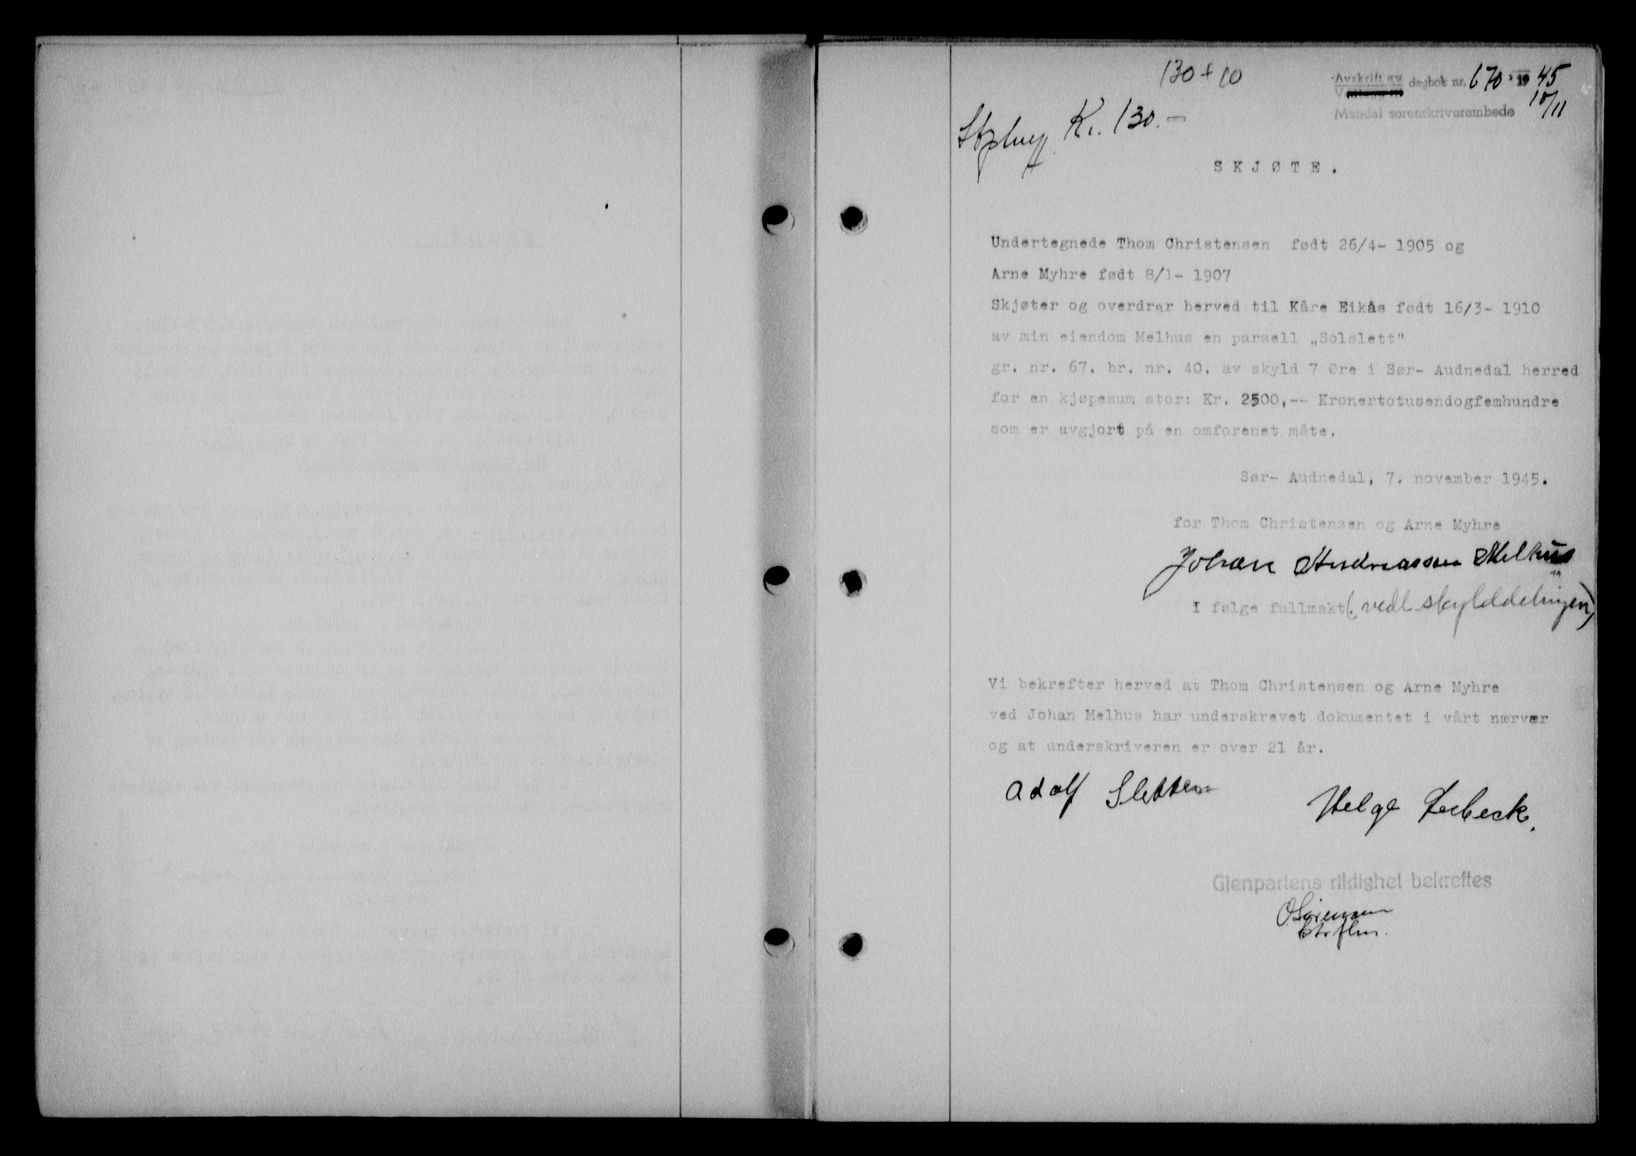 130 + 10
Avskrift av dagbok nr. 670 - 1945
Mandal sorenskriverembede 10/11
Kr. 130.-
SKJØTE.
Undertegnede Thom Christensen født 26/4- 1905 og
Arne Myhre født 8/1- 1907
Skjøter og overdrar herved til Kåre Eikås født 16/3- 1910
av min eiendom Melhus en parsell „Solslett"
gr. nr. 67. br. nr. 40. av skyld 7 Øre i Sør- Audnedal herred
for en kjøpesum stor: Kr. 2500,-- Kronertotusendogfemhundre
som er avgjort på en omforenet måte.
Sør- Audnedal, 7. november 1945.
for Thom Christensen og Arne Myhre
Johan Andreassen Melhus
I følge fullmakt (vedl. skylddelingen)
Vi bekrefter herved at Thom Christensen og Arne Myhre
ved Johan Melhus har underskrevet dokumentet i vårt nærvær
og at underskriveren er over 21 år.
Adolf Sletten
Helge
Gjenpartens riktighet bekreftes
O. Sørensen